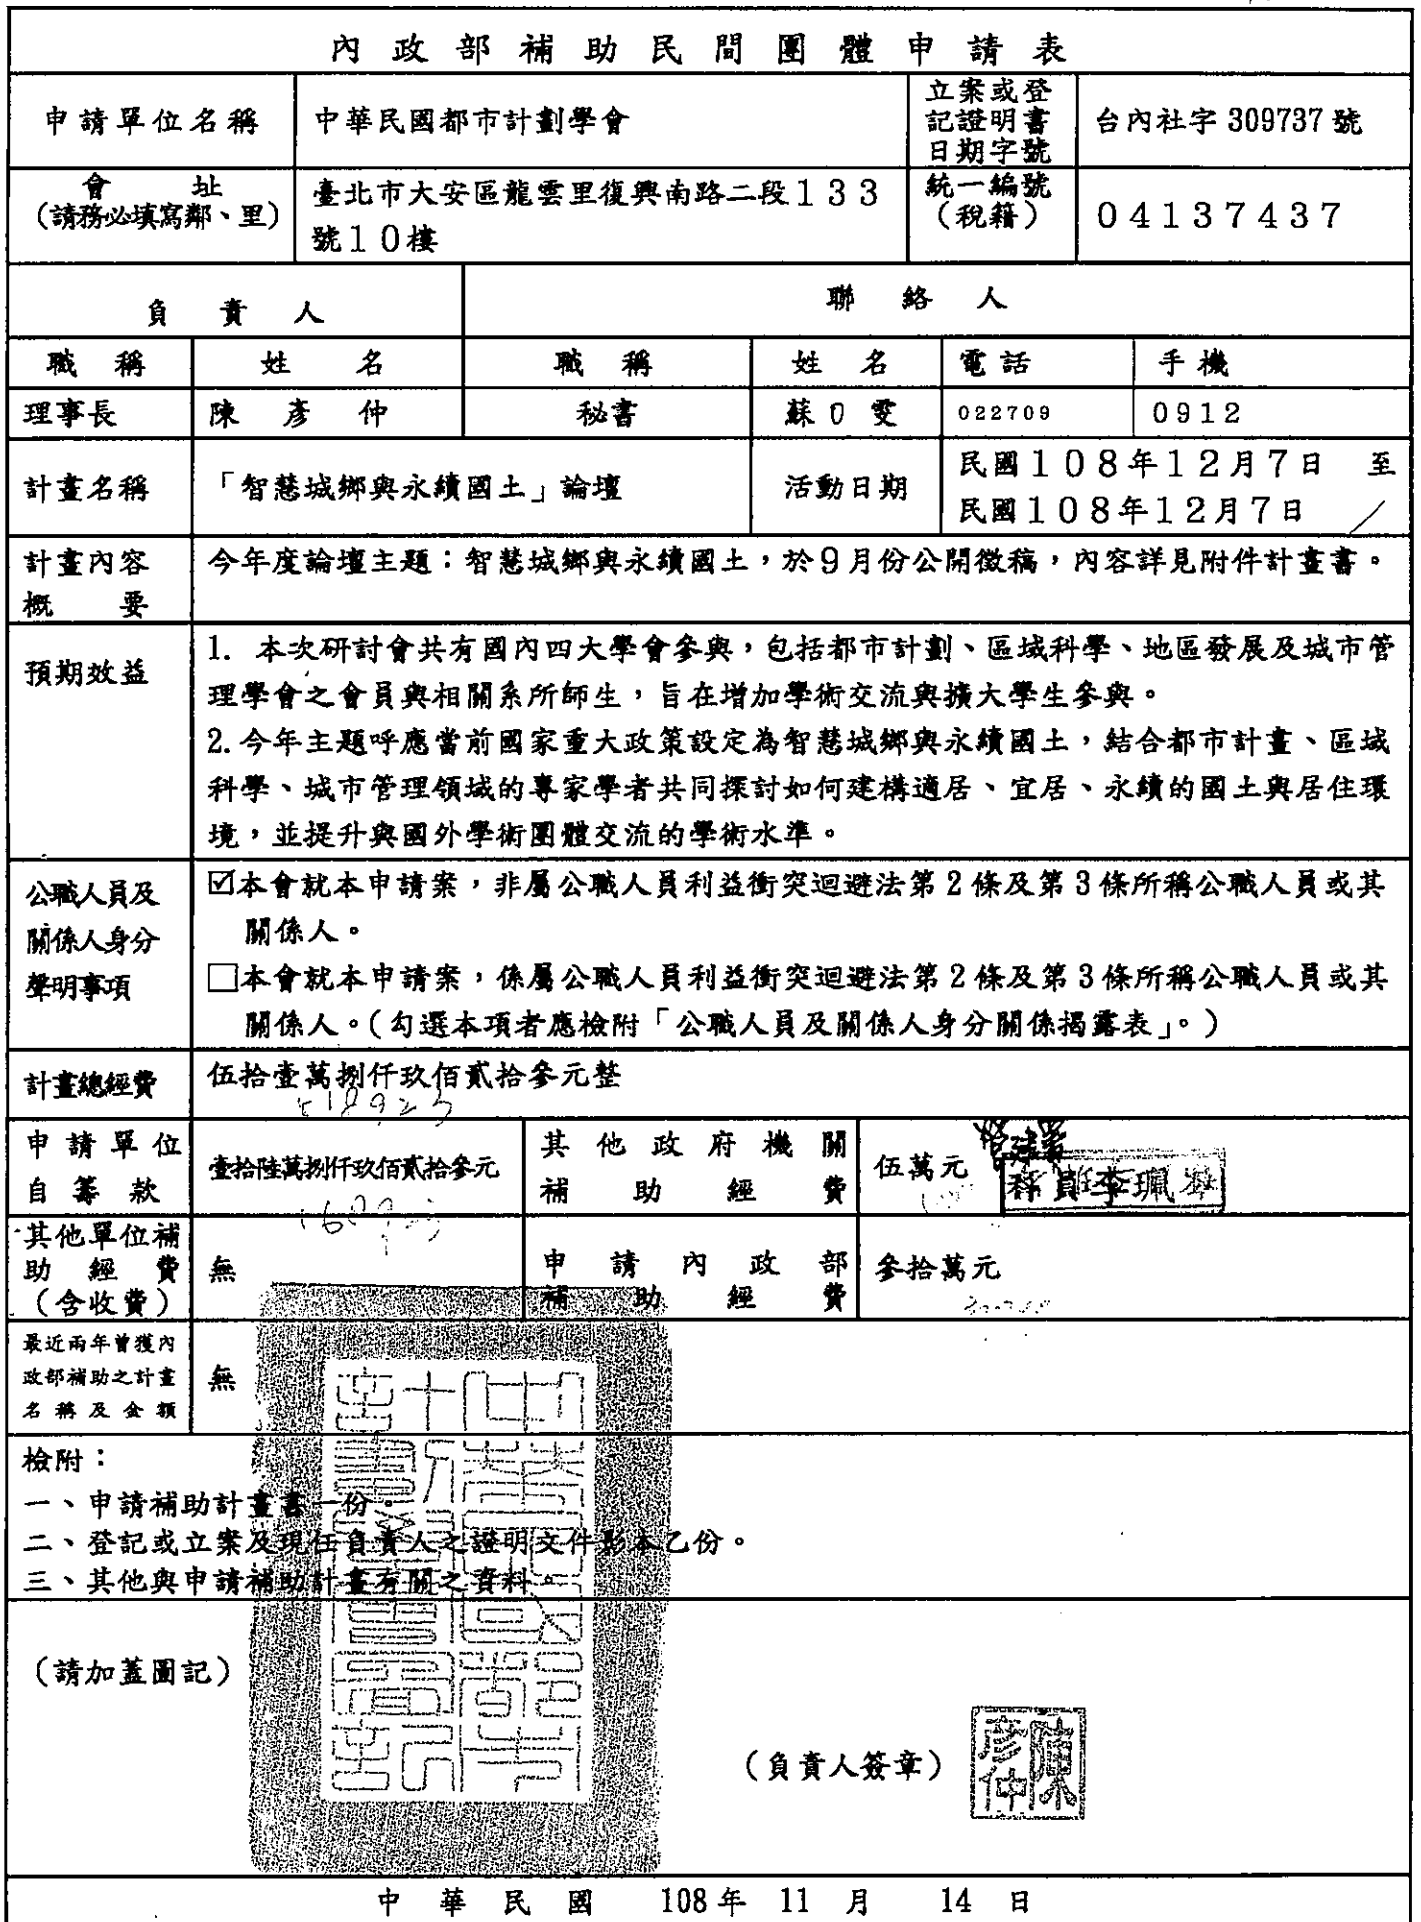 內政部補助民間團體申請表
申請單位名稱
中華民國都市計劃學會
立案或登
記證明書
日期字號
台內社字309737號
會址
(請務必填寫鄰、里)
臺北市大安區龍雲里復興南路二段133
號10樓
統一編號
(稅籍)
04137437
負責人
聯絡人
職稱
姓名
職稱
姓名
電話
手機
理事長
陳彥仲
秘書
蘇0雯
022709
0912
計畫名稱
「智慧城鄉與永續國土」論壇
活動日期
民國108年12月7日 至
民國108年12月7日
計畫內容
概要
今年度論壇主題：智慧城鄉與永續國土，於9月份公開徵稿，內容詳見附件計畫書。
預期效益
1. 本次研討會共有國內四大學會參與，包括都市計劃、區域科學、地區發展及城市管
理學會之會員與相關系所師生，旨在增加學術交流與擴大學生參與。
2.今年主題呼應當前國家重大政策設定為智慧城鄉與永續國土，結合都市計畫、區域
科學、城市管理領域的專家學者共同探討如何建構適居、宜居、永續的國土與居住環
境，並提升與國外學術團體交流的學術水準。
公職人員及
關係人身分
聲明事項
☑本會就本申請案，非屬公職人員利益衝突迴避法第2條及第3條所稱公職人員或其
關係人。
□本會就本申請案，係屬公職人員利益衝突迴避法第2條及第3條所稱公職人員或其
關係人。(勾選本項者應檢附「公職人員及關係人身分關係揭露表」。)
計畫總經費
伍拾壹萬捌仟玖佰貳拾參元整
518923
申請單位
自籌款
壹拾陸萬捌仟玖佰貳拾參元
其他政府機關
補助經費
伍萬元
科員李珮
其他單位補
助經費
(含收費)
無
申請內政部
補助經費
參拾萬元
最近兩年曾獲內
政部補助之計畫
名稱及金額
無
檢附：
一、申請補助計畫書一份。
二、登記或立案及現任負責人之證明文件影本乙份。
三、其他與申請補助計畫有關之資料。
(請加蓋圖記)
(負責人簽章)
陳彥仲
中華民國 108年 11月 14日